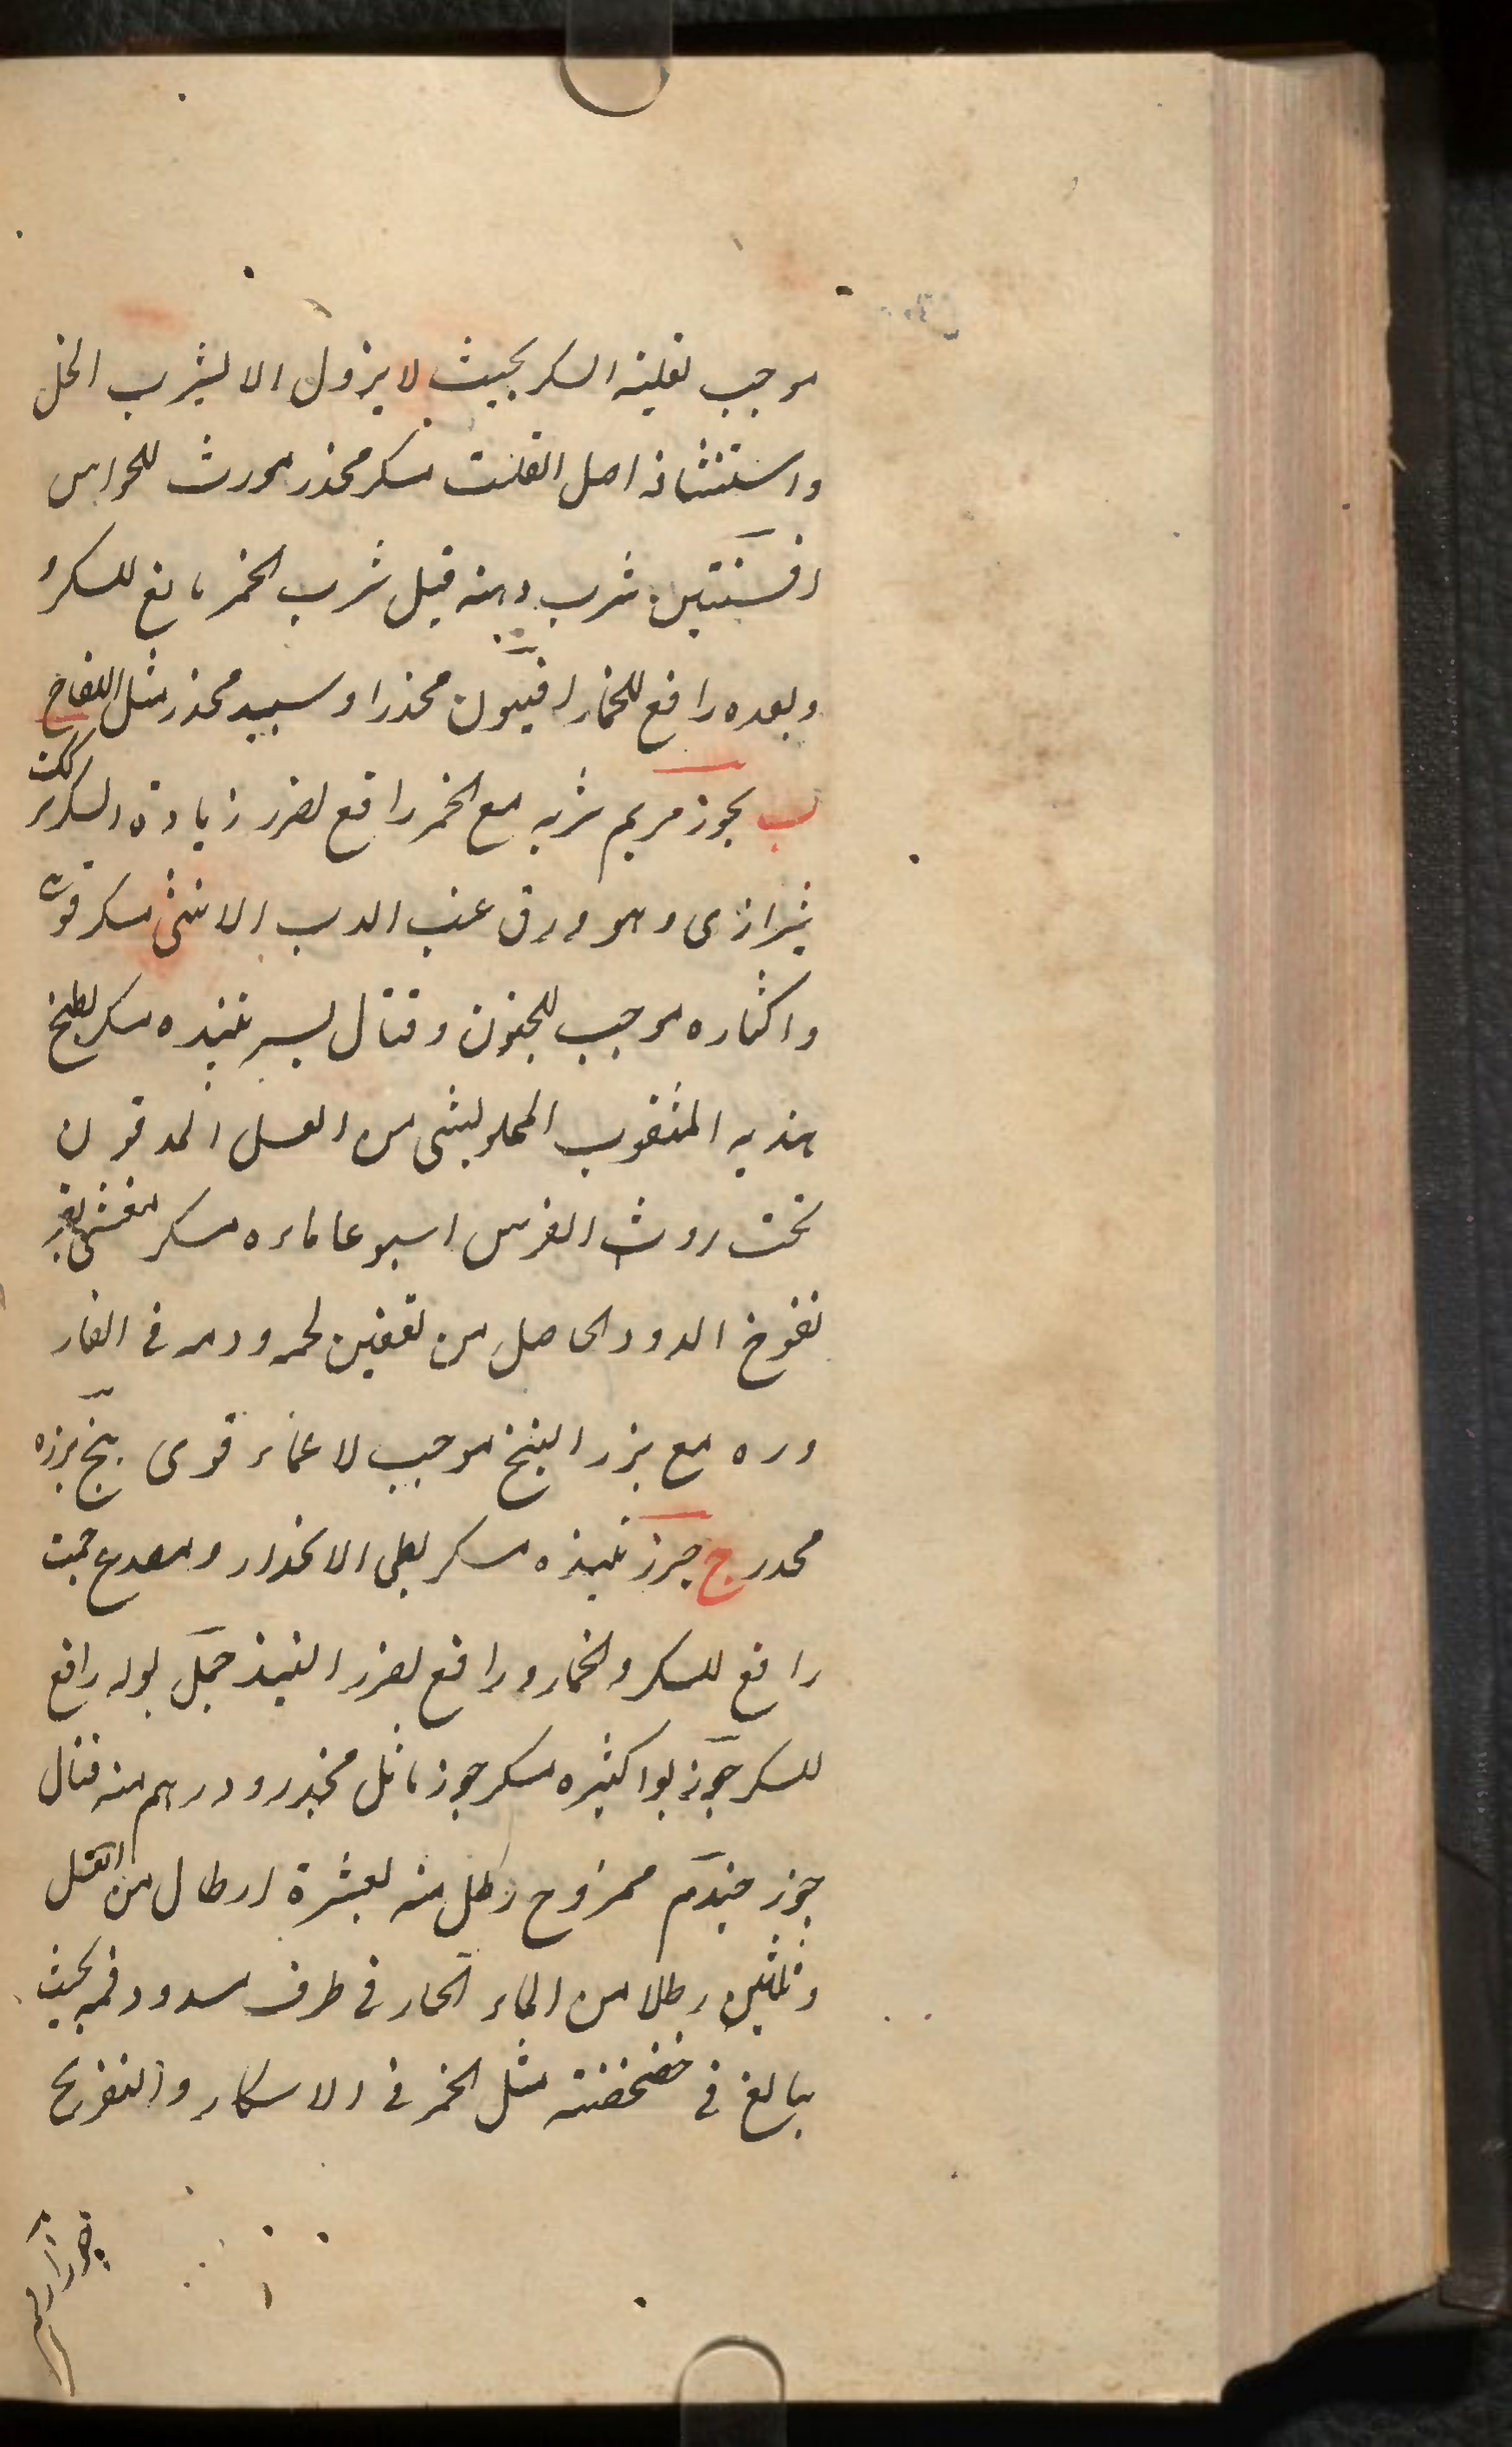 موجب لغلبة السكر بحيث لا يزول الا بشرب الخل
واستنشاقه اصل القلت مسكر مخدر مورث للحواس
افسنتين شرب دهنه قبل شرب الخمر مانع للسكر و
وبعده رافع للخمار افيون مخدر اوسبيد مخدر مثل اللفاح
ب بخور مريم شربه مع الخمر رافع لضرر زيادة السكر
شيرازى وهو ورق عنب الدب الانثى مسكر قوى
واكثاره موجب للجنون وقتال بسر نبيذه مسكر بطيخ
هنديه المثقوب المملو بشى من العسل المدفون
تحت روث الفرس اسبوعا ماءه مسكر مغشى بقر
نفوخ الدود الحاصل من تعفين لحمه ودمه فى الغار
وره مع بزر البنج موجب لاغماء قوى بنج بزره
مخدر ج جزر نبيذه مسكر بطى الانحدار ومصدع جمت
رافع للسكر والخمار ورافع لضرر النبيذ جمل بوله رافع
للسكر جوز بوا كثيره مسكر جوز ماثل مخدر ودرهم منه قتال
جوز جندم ممزوج رطل منه بعشرة ارطال من العسل
وثلثين رطلا من الماء الحار فى ظرف مسدود فمه بحيث
يبالغ فى خضخضته مثل الخمر فى الاسكار والتفريح